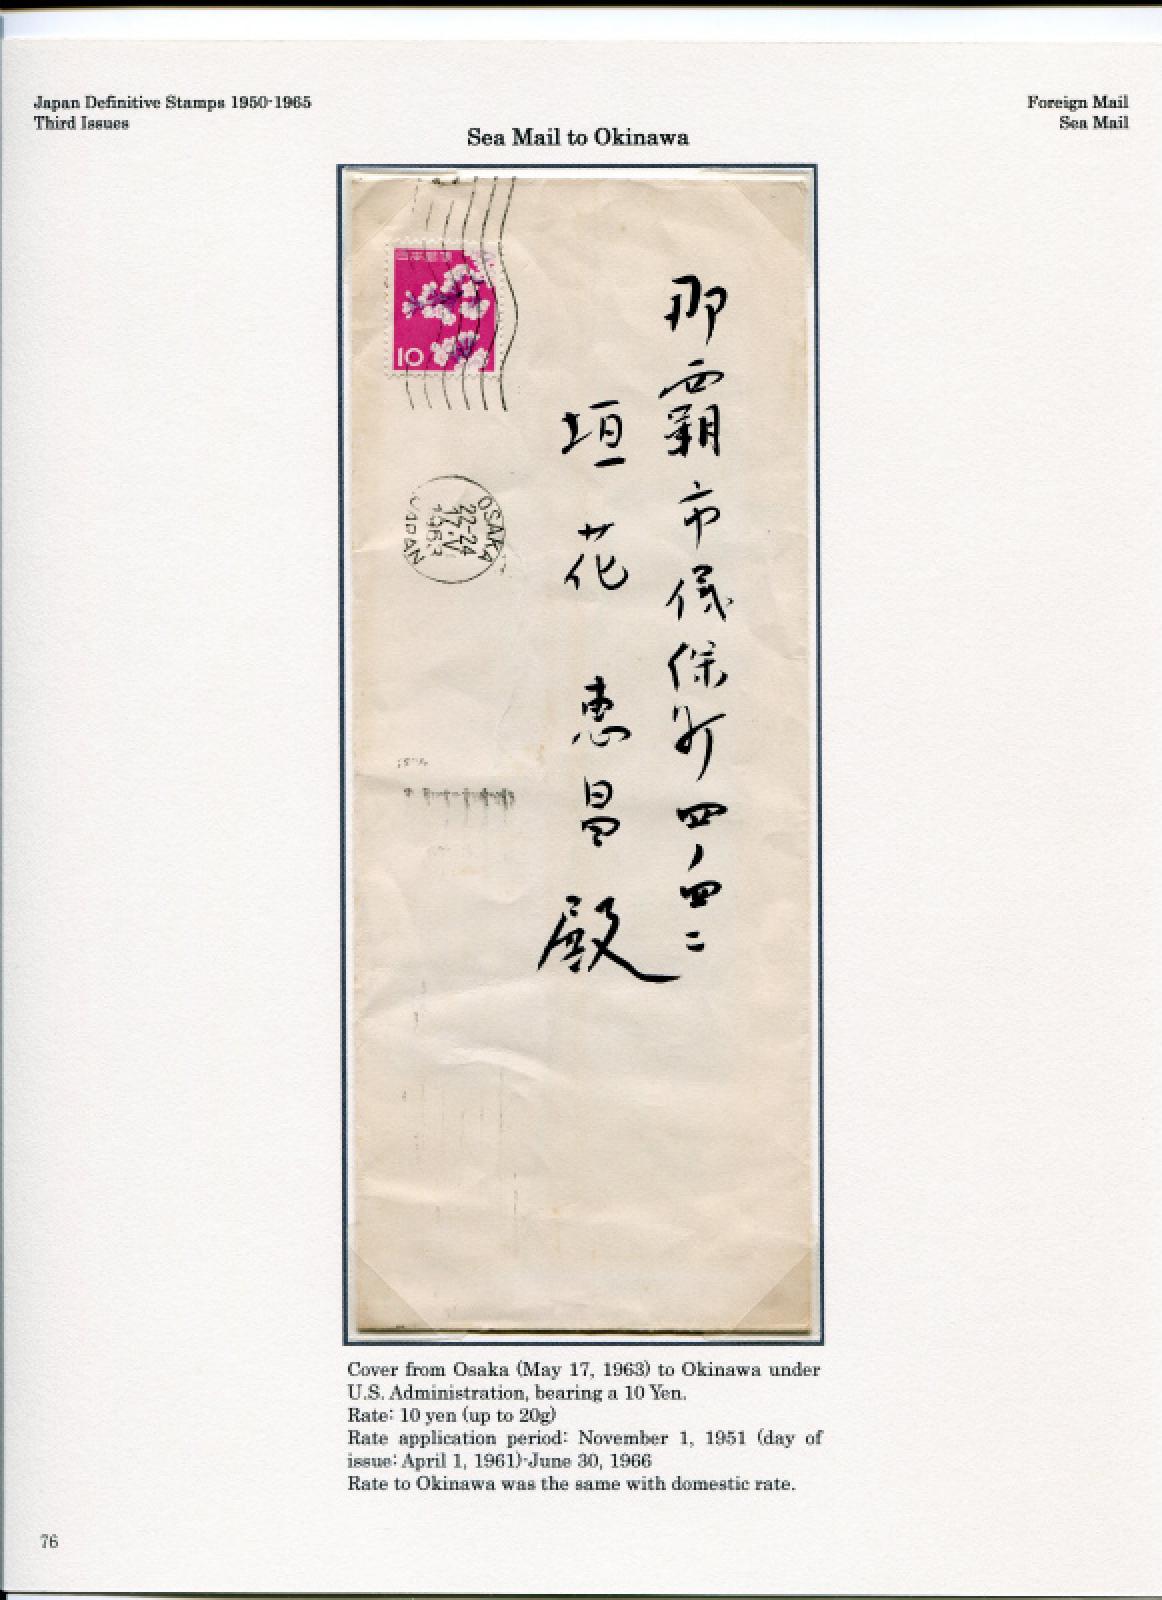 Japan Definitive Stamps 1950-1965
Third Issues
Foreign Mail
Sea Mail
Sea Mail to Okinawa
日本郵便
10
那覇市儀保町四ノ四二
垣花 恵昌 殿
OSAKA
22-24
17.V
1963
JAPAN
Cover from Osaka (May 17, 1963) to Okinawa under
U.S. Administration, bearing a 10 Yen.
Rate: 10 yen (up to 20g)
Rate application period: November 1, 1951 (day of
issue: April 1, 1961)-June 30, 1966
Rate to Okinawa was the same with domestic rate.
76